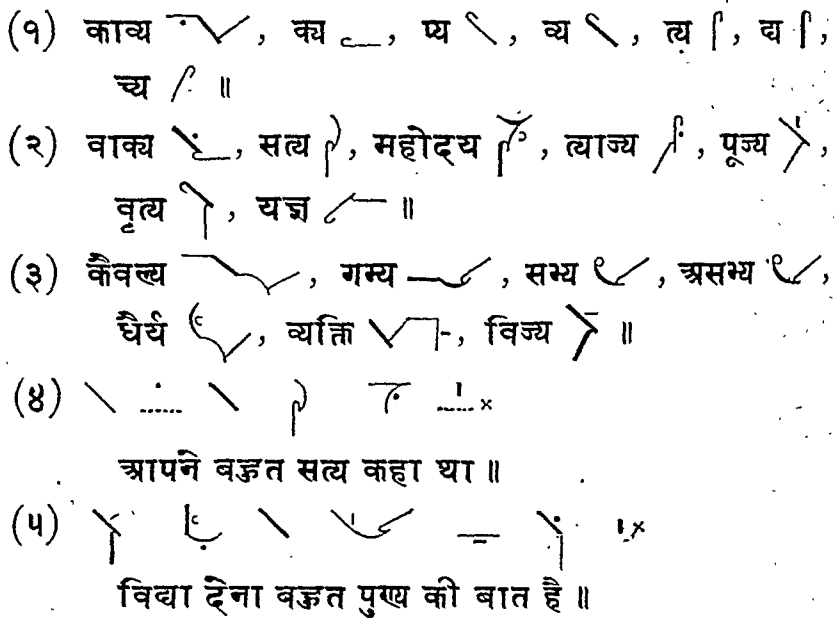 (१) काव्य , क्य , प्य , व्य , त्य , द्य ,
च्य ॥
(२) वाक्य , सत्य , महोदय , त्याज्य , पूज्य ,
वृत्य , यज्ञ ॥
(३) कैवल्य , गम्य , सभ्य , असभ्य ,
धैर्य , व्यक्ति , विज्य ॥
(४) ×
आपने बहुत सत्य कहा था ॥
(५) ×
विद्या देना बहुत पुण्य की बात है ॥